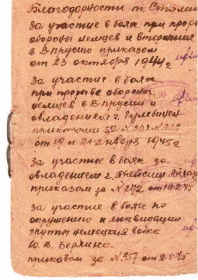 Благодарности т. Сталин
За участие в боях при прорыве
обороны немцев и вторжение
в В. Пруссию приказом
от 23 октября 1944 г
За участие в боях
при прорыве обороны
немцев в В. Пруссии и
овладением г. Гумбинен
приказами
от 19 и 21 января 1945 г
За участие в боях за
овладением г. Прейсиш Айлау
приказом за № 272 от 10.2.45
за участие в боях по
окружению и ликвидации
группы немецких войск
Ю. В. Берлина
приказом за № 357 от 2.5.45